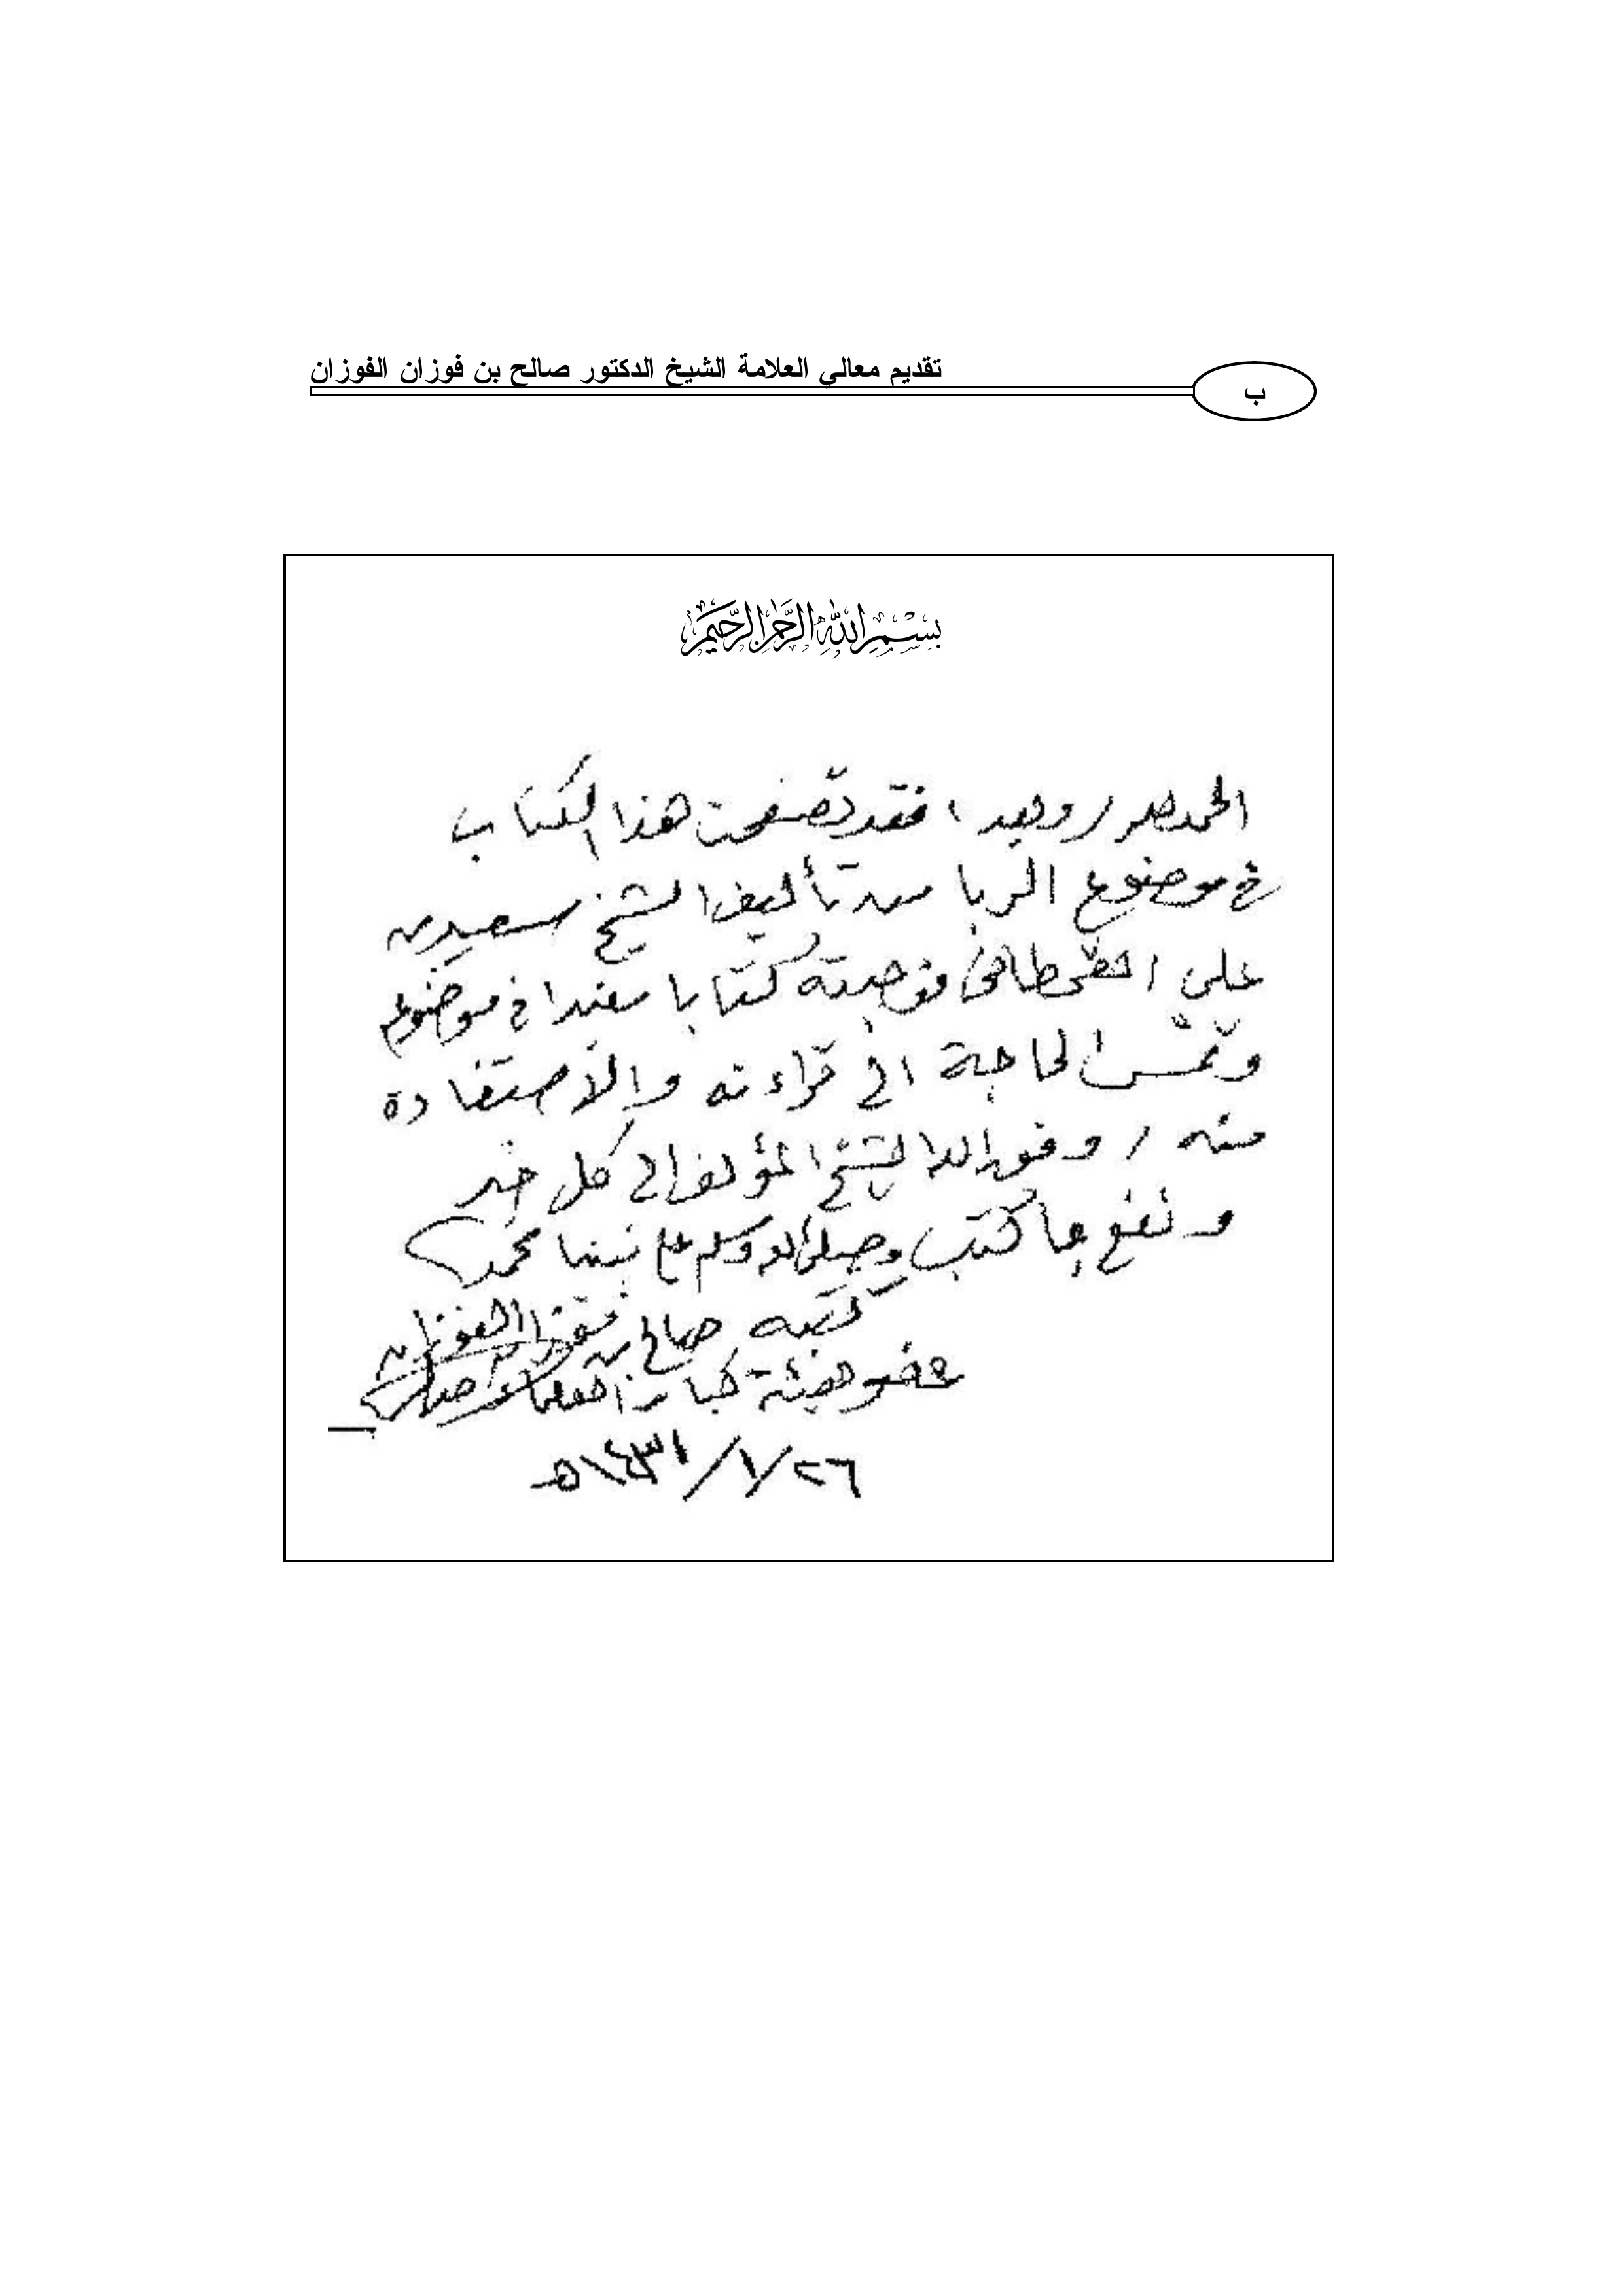 تقديم معالي العلامة الشيخ الدكتور صالح بن فوزان الفوزان
ب
بسم الله الرحمن الرحيم
الحمد لله / وبعد ، فقد تصفحت هذا الكتاب
في موضوع الربا من تأليف الشيخ سعيد بن
علي القحطاني فوجدته كتابا مفيدا في موضوعه
وتمس الحاجة الى قراءته والاستفادة
منه / وفق الله الشيخ المؤلف الى كل خير
ونفع بما كتب وصلى الله وسلم على نبينا محمد
كتبه صالح بن فوزان الفوزان
عضو هيئة كبار العلماء
٢٦/١/١٤٣١هـ